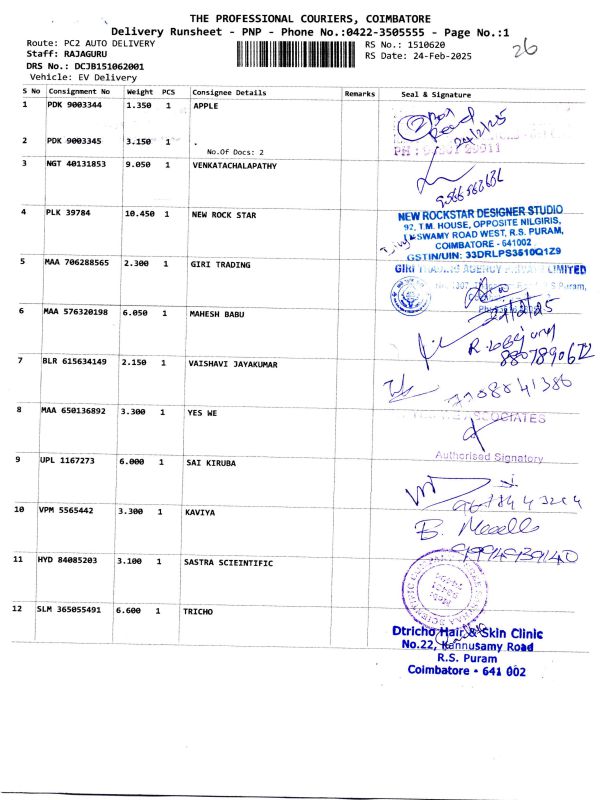 THE PROFESSIONAL COURIERS, COIMBATORE
Delivery Runsheet - PNP - Phone No.:0422-3505555 - Page No.:1
Route: PC2 AUTO DELIVERY
RS No.: 1510620
26
Staff: RAJAGURU
RS Date: 24-Feb-2025
DRS No.: DCJB151062001
Vehicle: EV Delivery
S No Consignment No Weight PCS Consignee Details Remarks Seal & Signature
1 PDK 9003344 1.350 1 APPLE
24/2/25
2 PDK 9003345 3.150 1 .
No.Of Docs: 2
3 NGT 40131853 9.050 1 VENKATACHALAPATHY
4 PLK 39784 10.450 1 NEW ROCK STAR
NEW ROCKSTAR DESIGNER STUDIO
92, T.M. HOUSE, OPPOSITE NILGIRIS,
SWAMY ROAD WEST, R.S. PURAM,
COIMBATORE - 641002
GSTIN/UIN: 33DRLPS3510Q1Z9
5 MAA 706288565 2.300 1 GIRI TRADING
GIRI TRADING AGENCY PRIVATE LIMITED
6 MAA 576320198 6.050 1 MAHESH BABU
8807890672
7 BLR 615634149 2.150 1 VAISHAVI JAYAKUMAR
7708841386
8 MAA 650136892 3.300 1 YES WE
ASSOCIATES
Authorised Signatory
9 UPL 1167273 6.000 1 SAI KIRUBA
10 VPM 5565442 3.300 1 KAVIYA
11 HYD 84085203 3.100 1 SASTRA SCIEINTIFIC
12 SLM 365055491 6.600 1 TRICHO
Dtricho Hair & Skin Clinic
No.22, Kannusamy Road
R.S. Puram
Coimbatore - 641 002